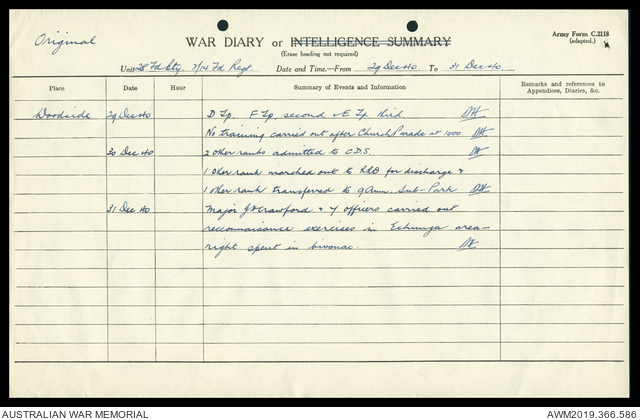 Original
WAR DIARY or INTELLIGENCE SUMMARY
(Erase heading not required)
Army Form C.2118
(adapted.)
Unit 28 Fd Bty. 2/14 Fd Regt. Date and Time.—From 29 Dec 40 To 31 Dec 40.
Place Date Hour Summary of Events and Information Remarks and references to
Appendices, Diaries, &c.
Woodside 29 Dec 40 D Tp. F Tp. second & E Tp third
No training carried out after Church Parade at 1000
30 Dec 40 2 other ranks admitted to C.D.S.
1 other rank marched out to RRD for discharge &
1 other rank transferred to 9 Amm. Sub-Park
31 Dec 40 Major J W Crawford & 7 officers carried out
reconnaisance exercises in Echunga area-
night spent in bivouac.
AUSTRALIAN WAR MEMORIAL AWM2019.366.586